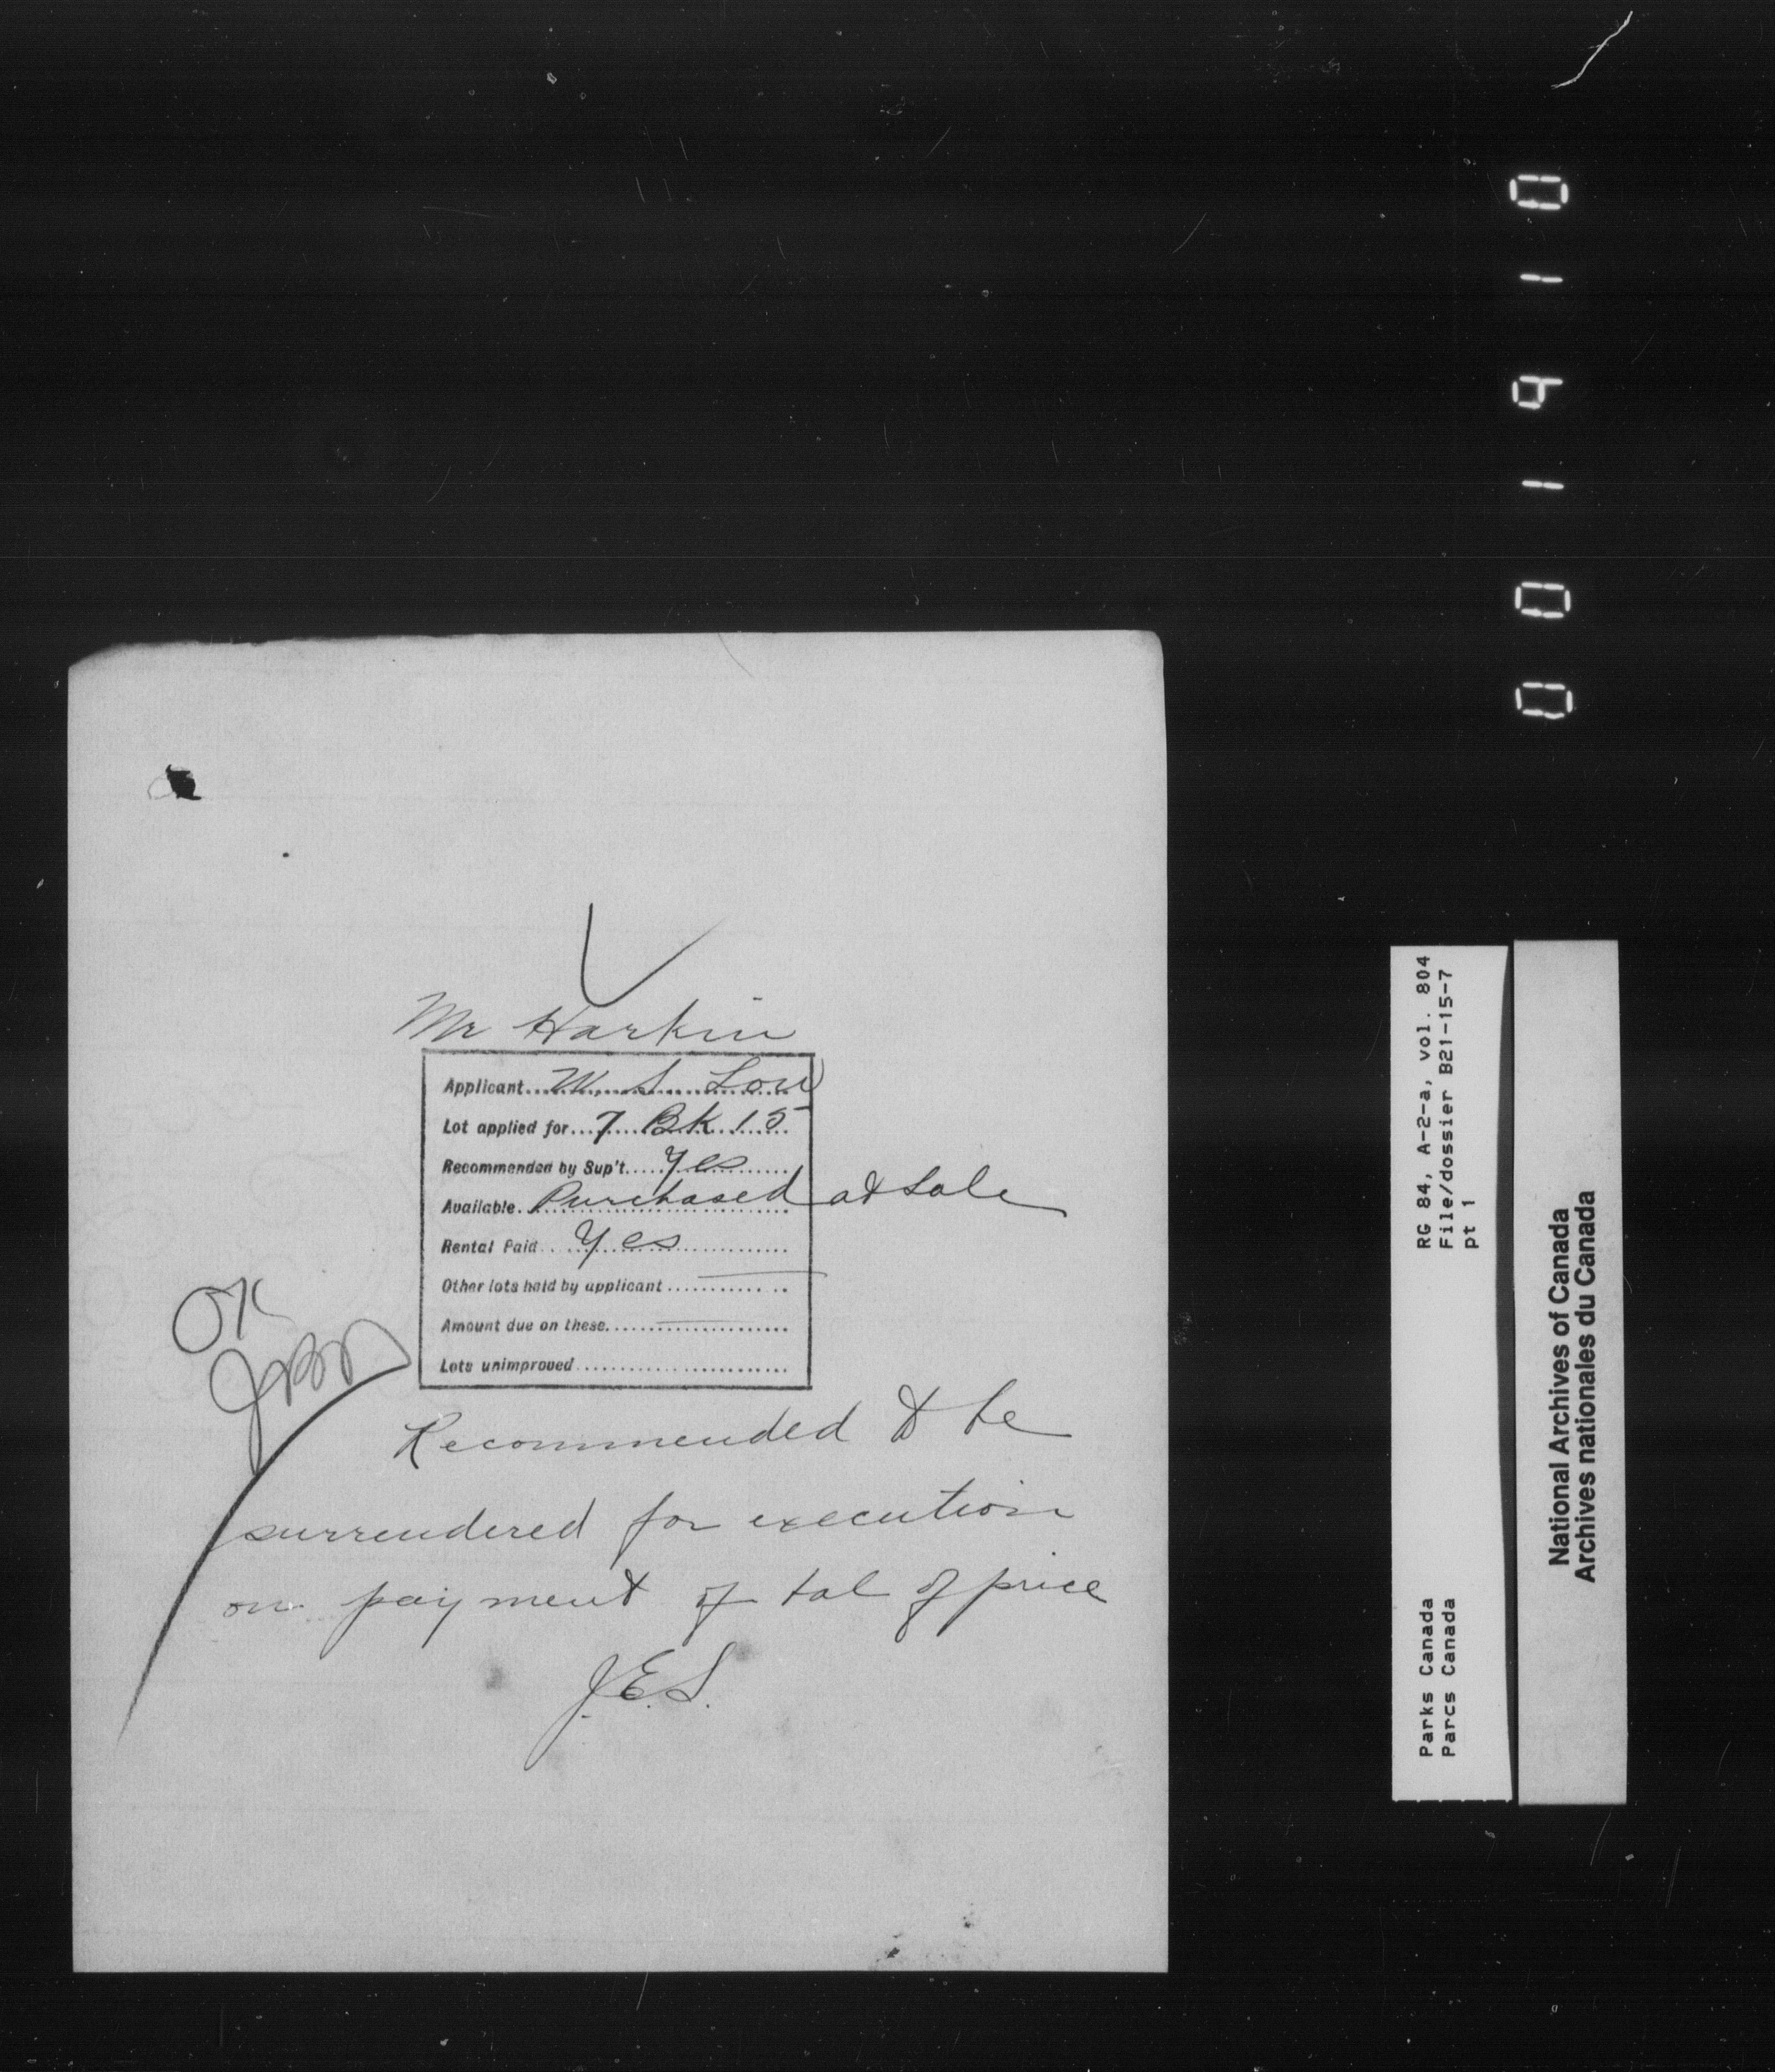 Mr Harkin
Applicant W. S. Low
Lot applied for 7 Bk 15
Recommended by Sup't Yes
Available Purchased at sale
Rental Paid Yes
Other lots held by applicant
Amount due on these
Lots unimproved
OK
Recommended to be
surrendered for execution
on payment of bal of price
J.E.S.
001910
RG 84, A-2-a, vol. 804
File/dossier B21-15-7
pt 1
Parks Canada
Parcs Canada
National Archives of Canada
Archives nationales du Canada